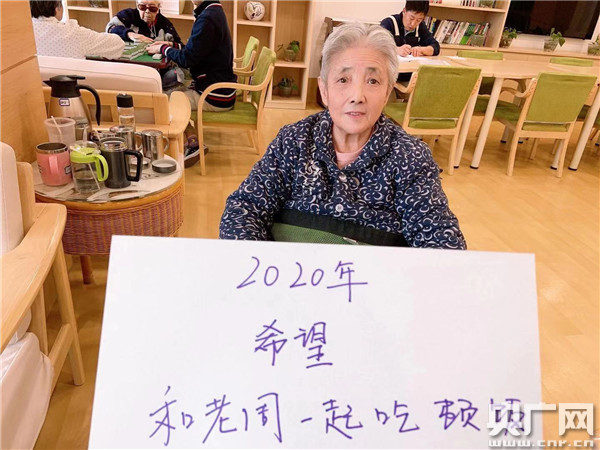 2020年
希望
和老周一起吃顿饭
央广网
www.cnr.cn